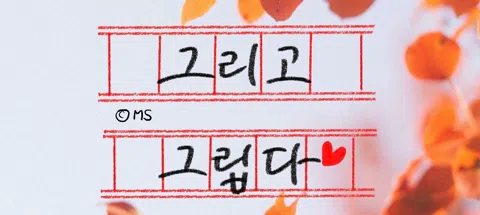 그리고
©MS
그립다